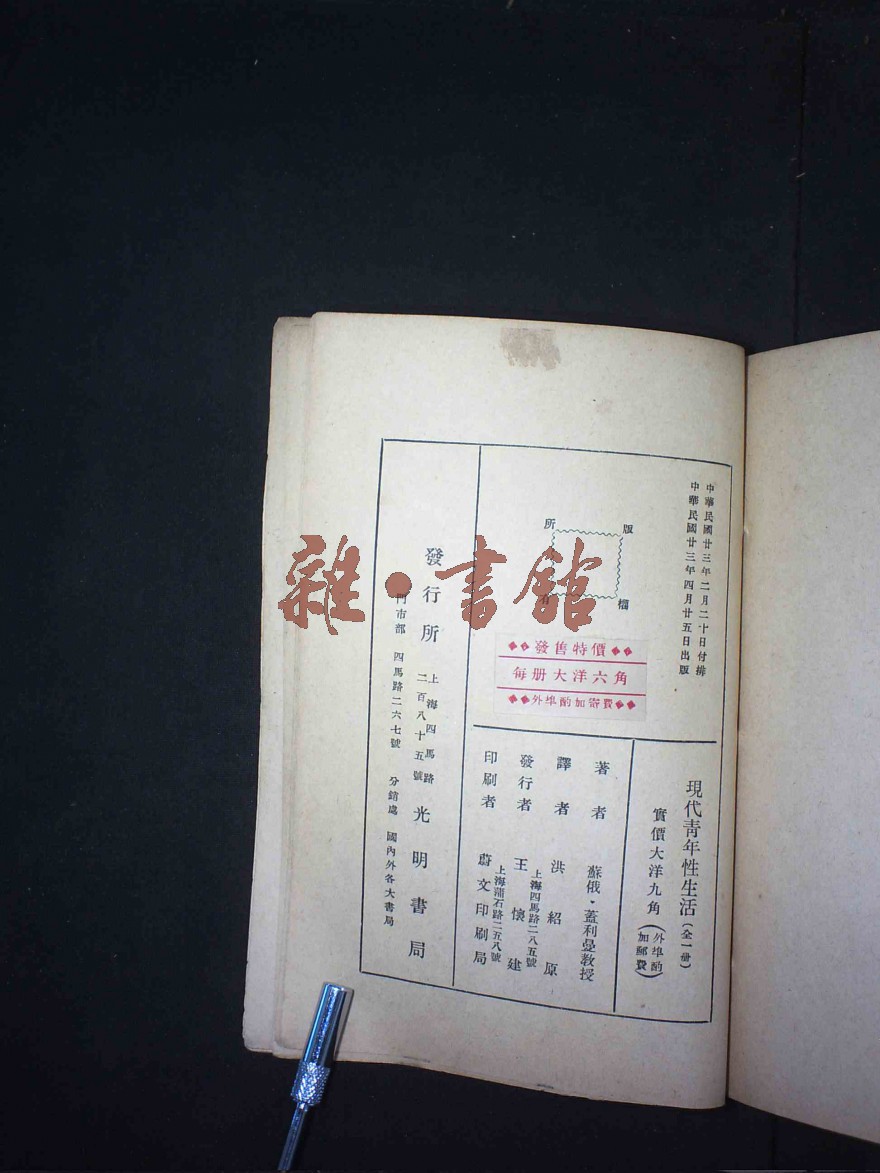 中華民國廿三年二月二十日付排
中華民國廿三年四月廿五日出版
版權
所
發售特價
每册大洋六角
外埠酌加寄費
現代青年性生活(全一册)
實價大洋九角(外埠酌加郵費)
著者 蘇俄・蓋利曼教授
譯者 洪紹原
發行者 王懷建
上海四馬路二八五號
印刷者 蔚文印刷局
上海蒲石路二五八號
發行所 上海四馬路二百八十五號 光明書局
門市部 四馬路二六七號 分銷處 國內外各大書局
雜・書館